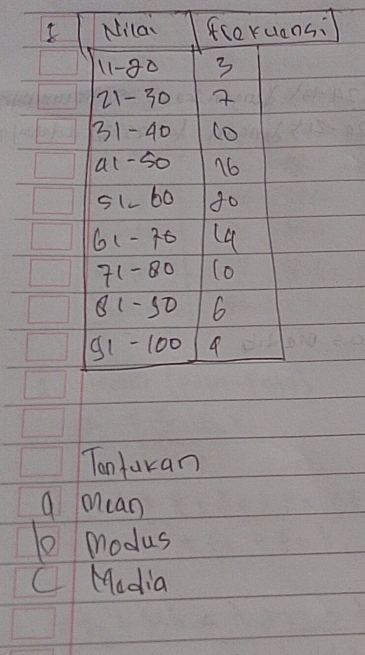 1 Nilai Frekuensi
11-20 3
21-30 7
31-40 10
41-50 16
51-60 20
61-70 14
71-80 10
81-90 6
91-100 4
Tentukan
a Mean
b Modus
c Media